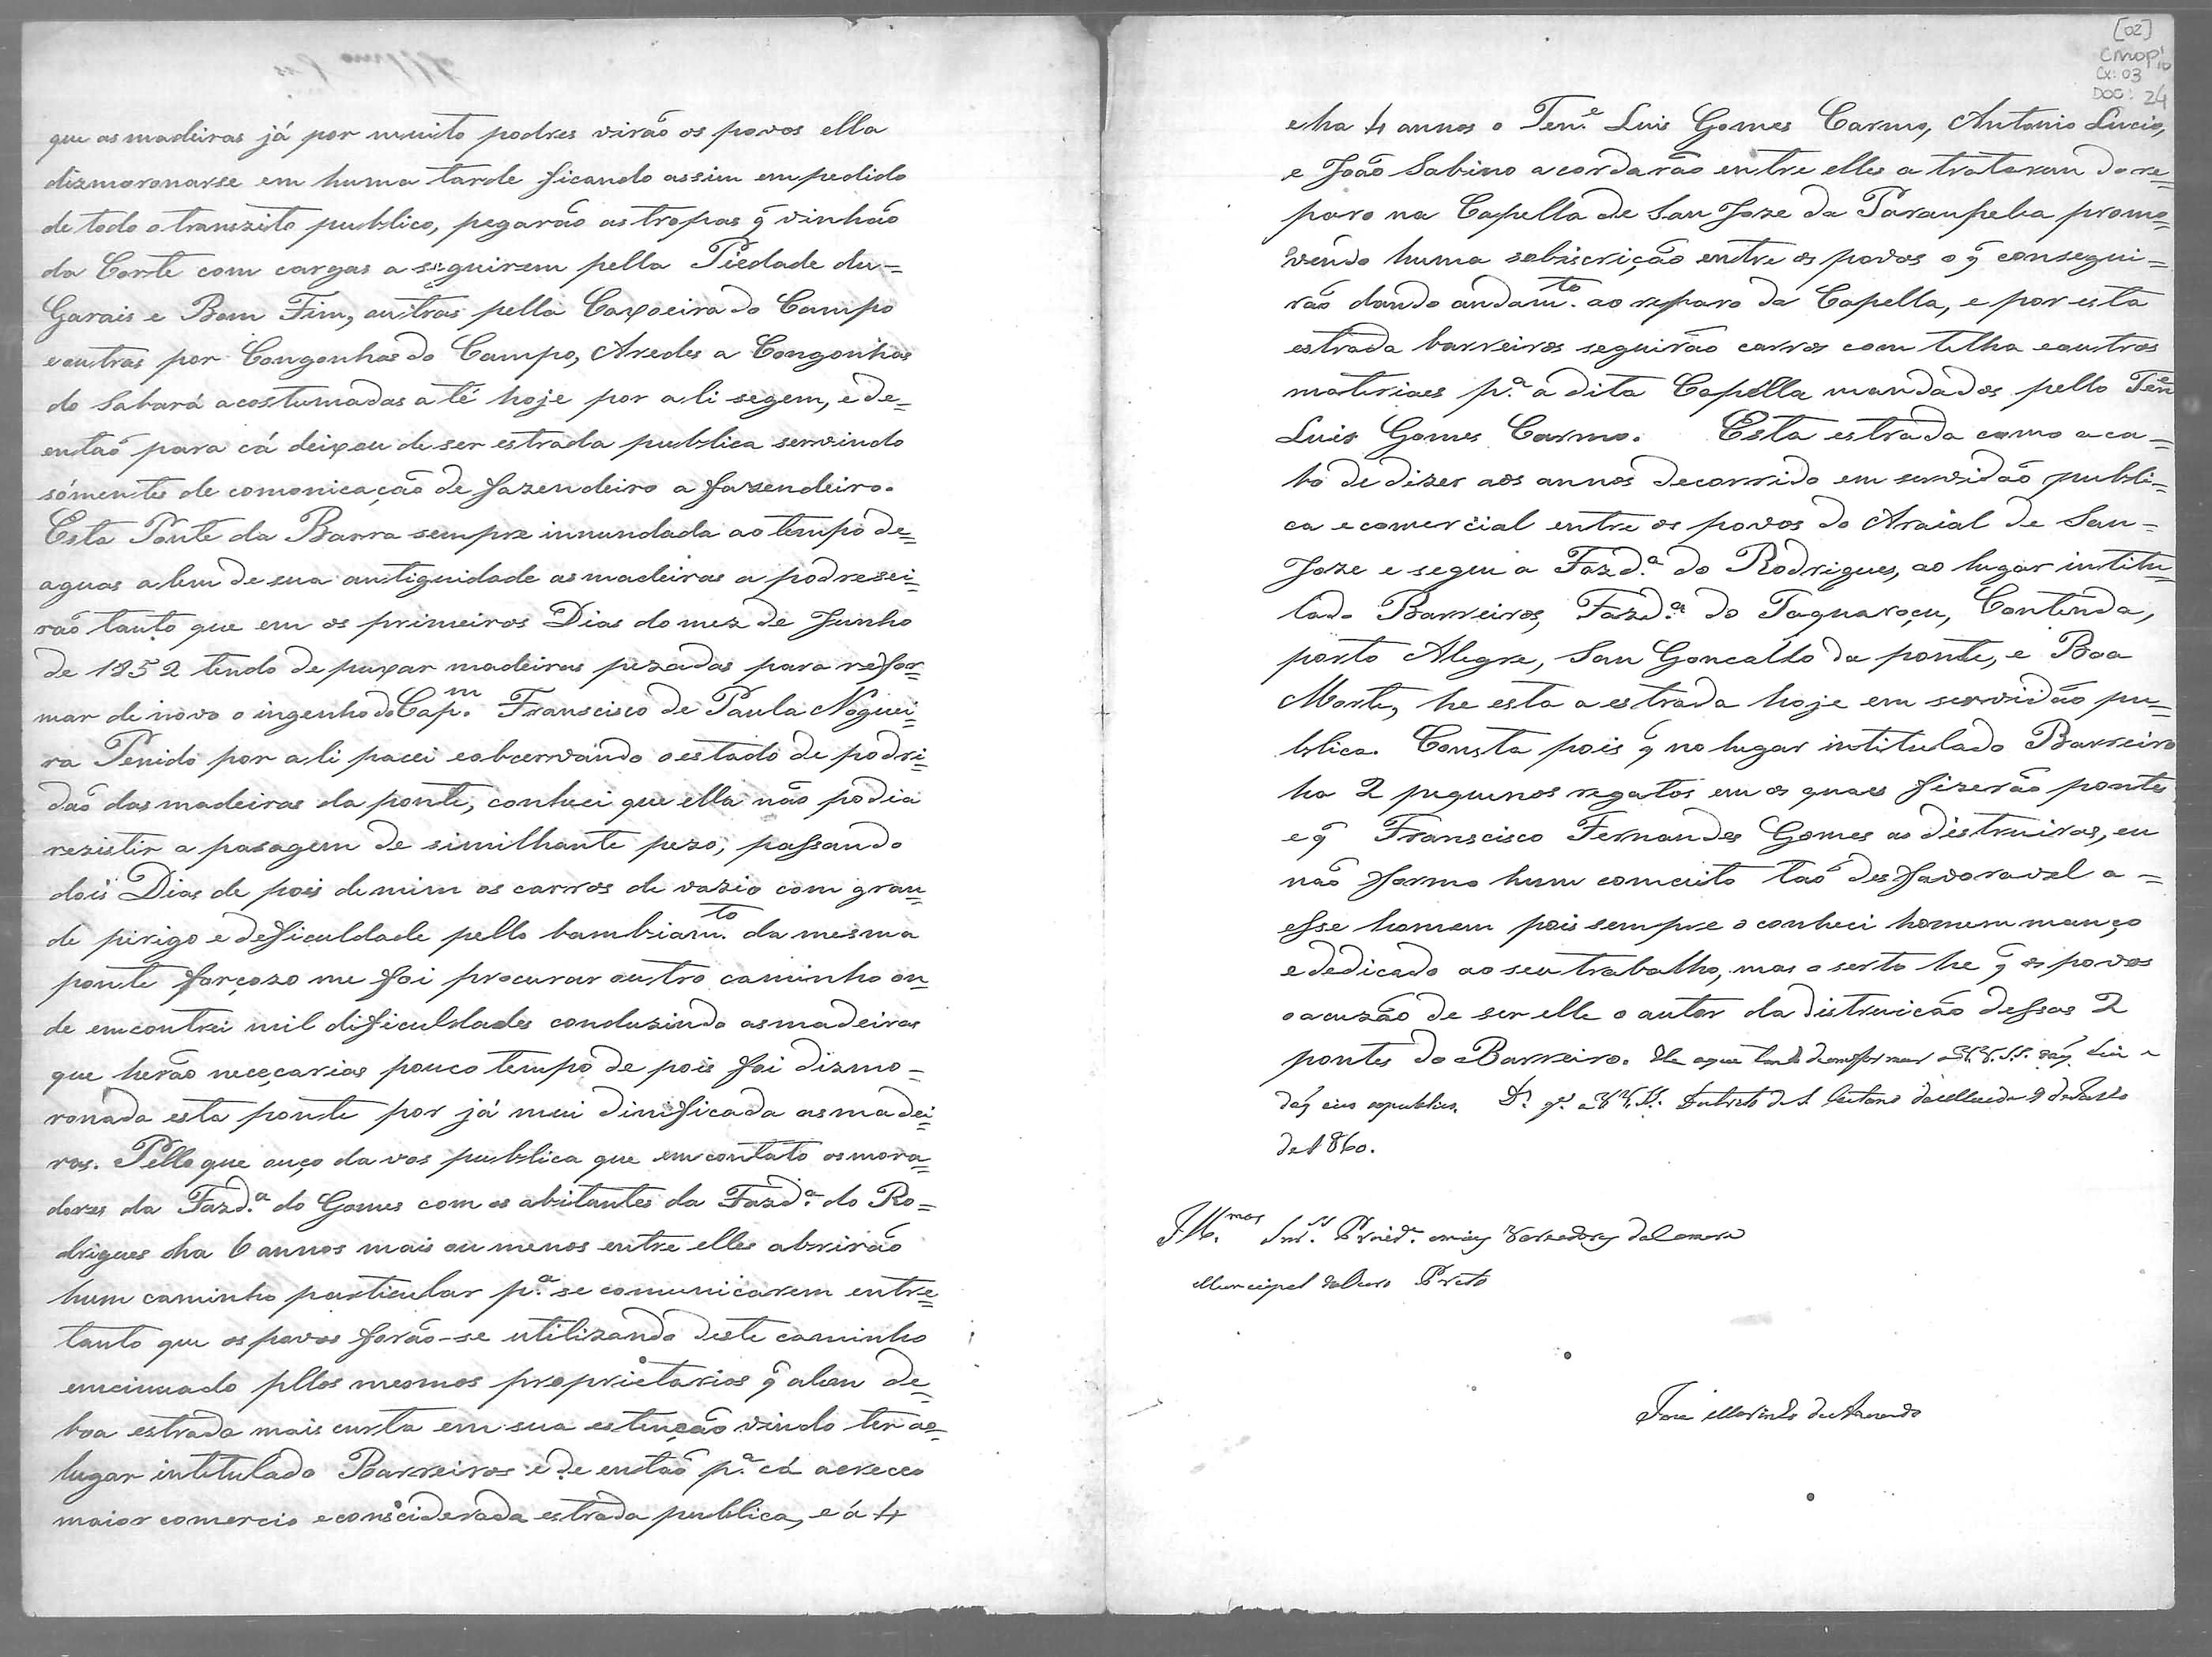 que as madeiras já por muito podres virão os povos ella
dizmoronarse em huma tarde ficando assim empedido
de todo o tranzito publico, pegarão as tropas q̃ vinhão
da Corte com cargas a seguirem pella Piedade du=
Garais e Bom Fim, outras pella Caxoeira do Campo
e outras por Congonhas do Campo, Aredes a Congonhas
do Sabará acostumadas a té hoje por ali segem, e de=
então para cá deixou de ser estrada publica servindo
sómente de comonicação de fazendeiro a fazendeiro.
Esta Ponte da Barra sempre innundada ao tempo de=
aguas alem de sua antiguidade as madeiras a podresei=
rão tanto que em os primeiros Dias do mez de Junho
de 1852 tendo de puxar madeiras pezadas para refor=
mar de novo o ingenho do Cap.m Franscisco de Paula Noguei=
ra Penido por ali pacei eobcervando o estado de podri=
dão das madeiras da ponte, conheci que ella não podia
rezistir a pasagem de similhante pezo; passando
dois Dias de pois de mim os carros de vazio com gran=
de pirigo e deficuldade pello bambiam.to da mesma
ponte forçozo me foi procurar outro caminho on=
de emcontrei mil dificuldades conduzindo as madeiras
que herão neceçarias pouco tempo de pois foi dizmo=
ronada esta ponte por já mui dinificada as madei=
ras. Pello que ouço da vos publica que em contato os mora=
dores da Fazd.a do Gomes com os abitantes da Fazd.a do Ro=
drigues ha 6 annos mais ou menos entre elles abrirão
hum caminho particular p.a se comunicarem entre=
tanto que os povos forão-se utilizando deste caminho
emcinuado pllos mesmos proprietarios q̃ alem de=
boa estrada mais curta em sua estenção vindo ter ao=
lugar intitulado Barreiros e de então p.a cá acreceo
maior comercio e consciderada estrada publica, e á 4
[02]
CMOP
Cx: 03
DOC: 24
e ha 4 annos o Ten.e Luis Gomes Carmo, Antonio Lucio,
e João Sabino acordarão entre elles a tratarem do re=
paro na Capella de San Joze da Paraupeba promo=
vendo huma sobiscrição entre os povos o q̃ consegui=
rão dando andam.to ao reparo da Capella, e por esta
estrada barreiros seguirão carros com telha e outros
materiaes p.a a dita Capella mandados pello Ten.e
Luis Gomes Carmo. Esta estrada como aca=
bo de dizer aos annos decorrido em servidão publi=
ca e comercial entre os povos do Araial de San=
Joze e segui a Fazd.a do Rodrigues, ao lugar intitu=
lado Barreiros, Fazd.a do Taquaroçu, Contenda,
porto Alegre, San Goncallo da ponte, e Boa
Morte, he esta a estrada hoje em servidão pu=
blica. Consta pois q̃ no lugar intitulado Barreiro
ha 2 piquenos regatos em os quaes fizerão ponte
e q̃ Franscisco Fernandes Gomes as distruiras, eu
não formo hum comceito tão desfavoravel a=
esse homem pois sempre o conheci homem manço
e dedicado ao seu trabalho, mas o serto he q̃ os povos
o acuzão de ser elle o autor da distruicão dessas 2
pontes do Barreiro. He o que tenho de
D.s g.e a V.V.S.S. 9 de
de 1860.
Ill.mos Snr.s Prezid.e e mais Vereadores da Camera
Municipal do Ouro Preto
Joze